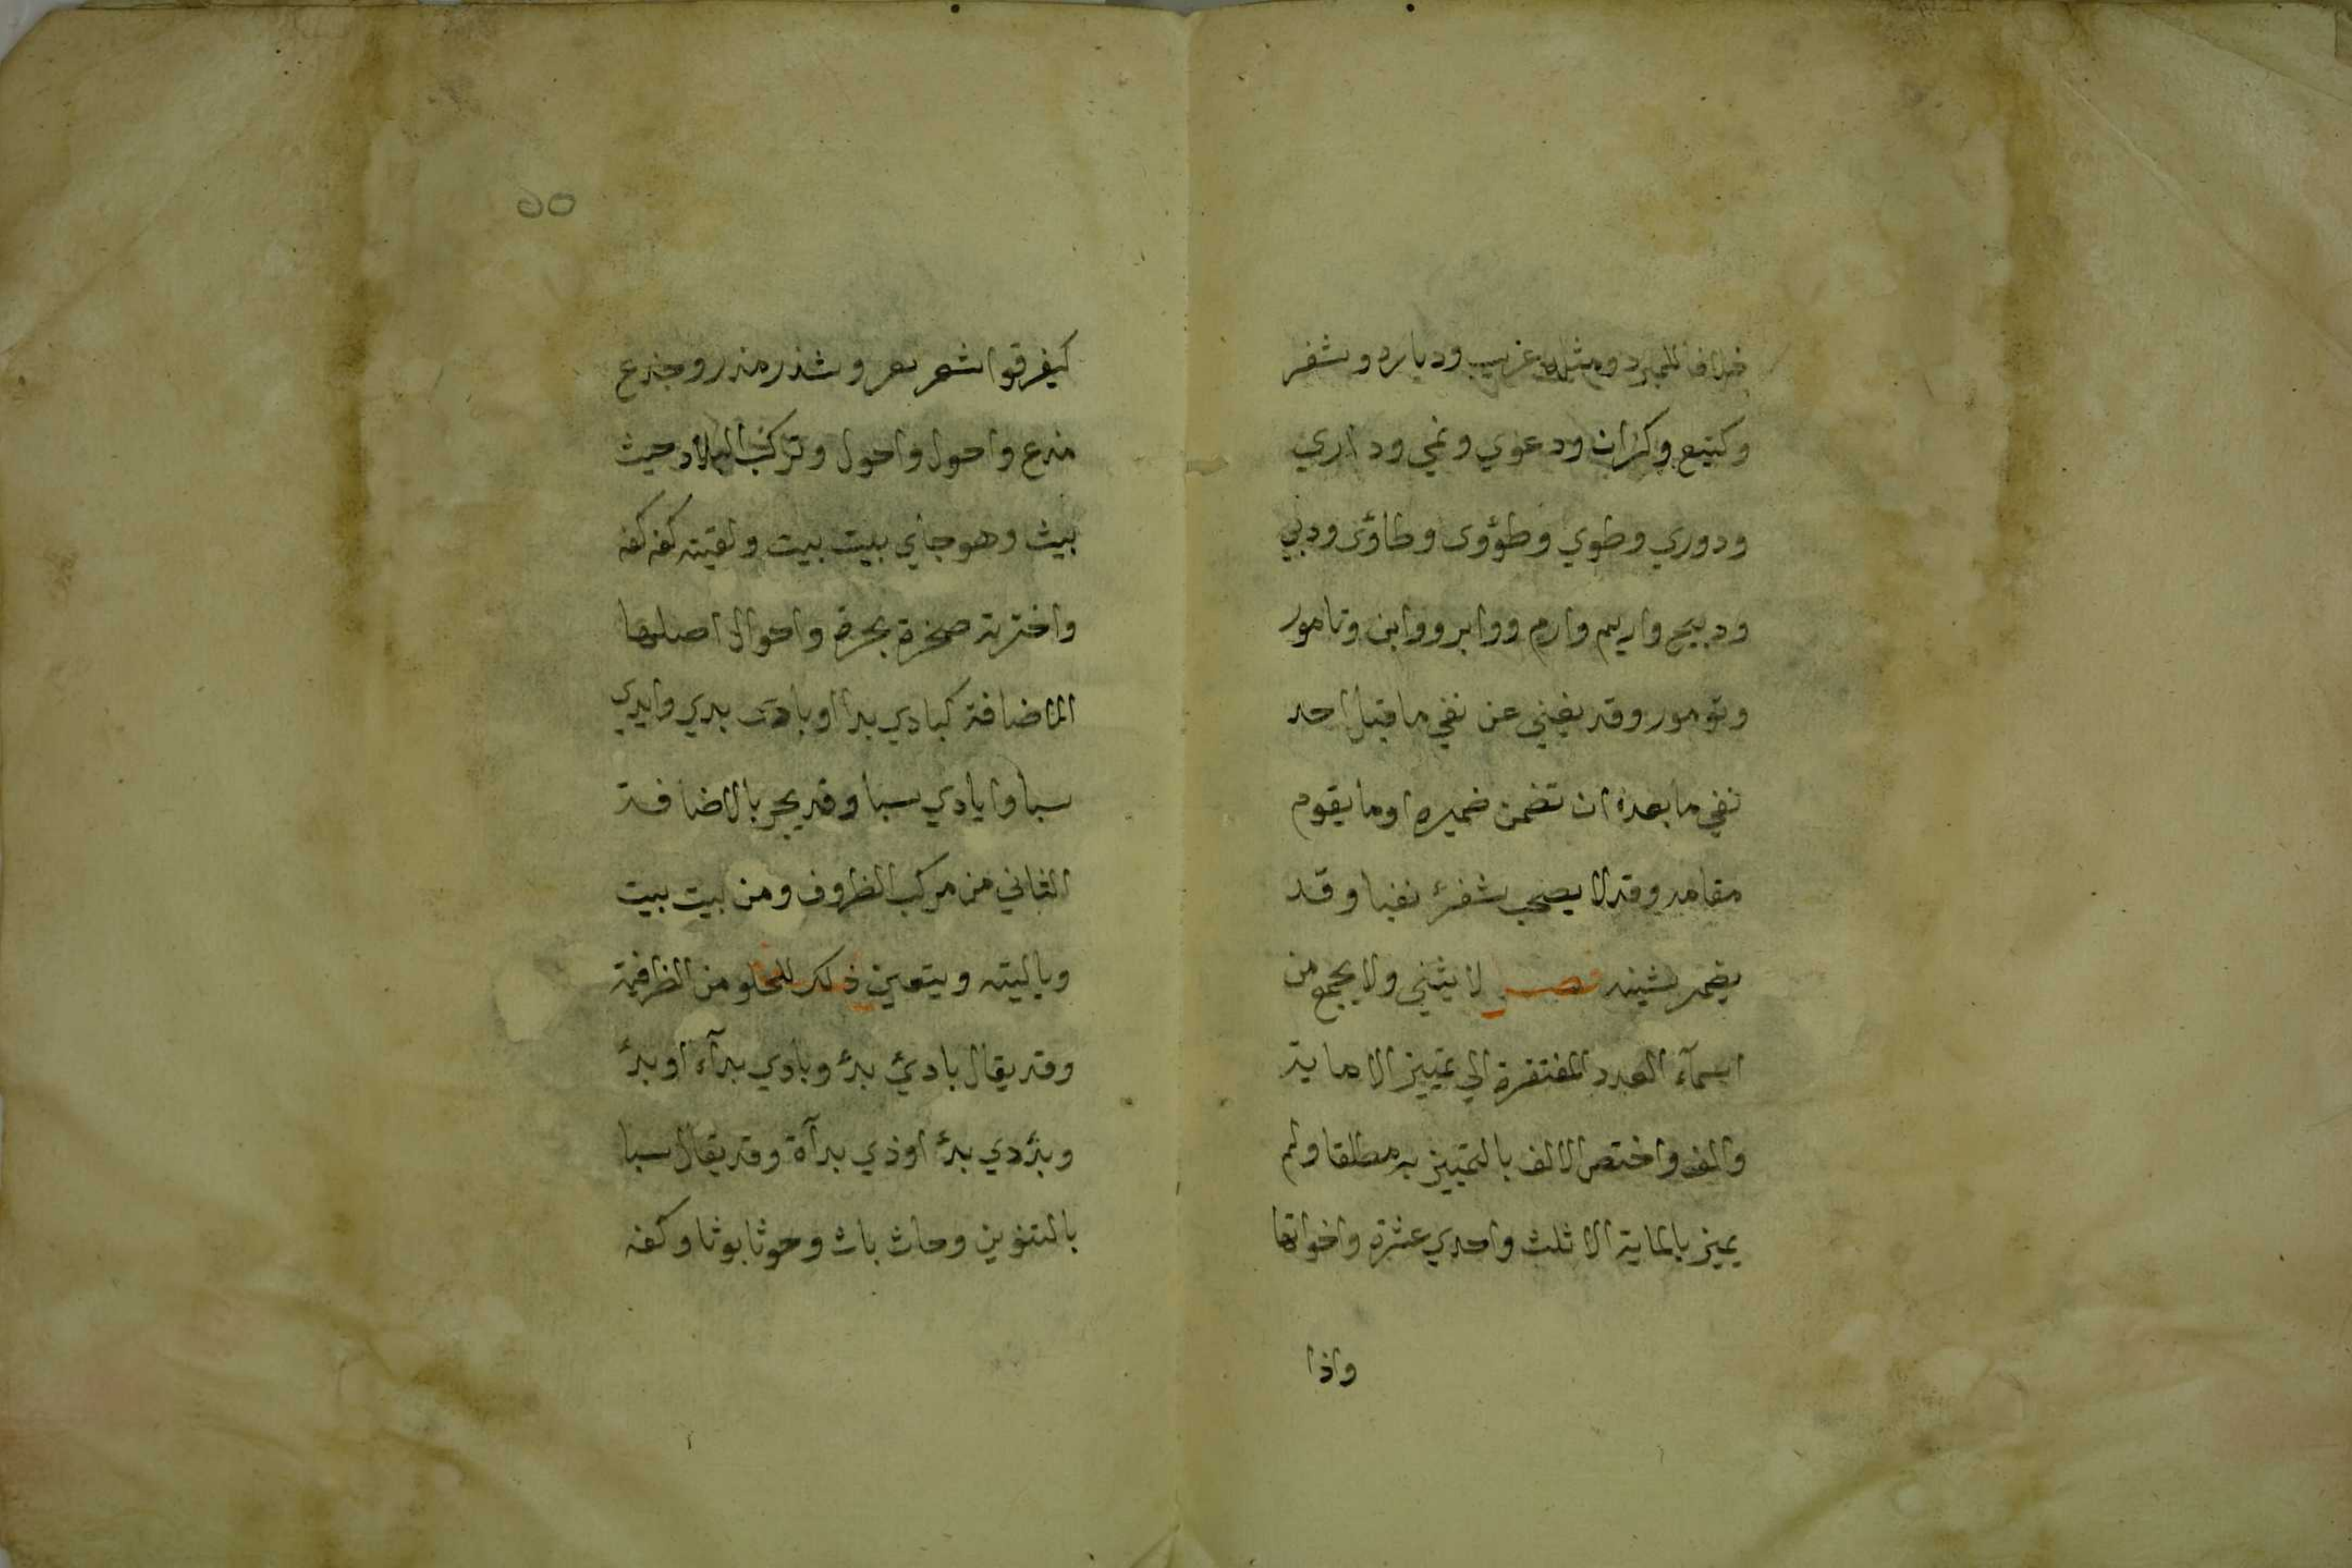 خلافا للمبرد ومثله عريب وديار وشفر
وكتيع وكراب ودعوي ونمي وداري
ودوري وطوي وطؤوى وطاؤى ودبي
ودبيج واريم وارم ووابر ووابن وتامور
وتومور وقد يغني عن نفي ما قبل احد
نفي ما بعده ان تضمن ضميره او ما يقوم
مقامه وقد لا يصحب شفر نفيا وقد
يضم شينه فصل لا يثني ولا يجمع من
اسمآء العدد المفتقرة الي تمييز الا ماية
والف واختص الالف بالتمييز به مطلقا ولم
يميز بالماية الا ثلث واحدي عشرة واخواتها
واذا
٥٥
كيفرقوا شغر بغر وشذر مذر وخذع
مذع واخول واخول وتركت البلاد حيث
بيث وهو جاري بيت بيت ولقيته كفه كفه
واخبرته صخرة بحرة واحوال اصلها
الاضافة كبادي بدأ او بادى بدي وايدي
سبا وايادي سبا وقد يجر بالاضافة
الثاني من مركب الظروف ومن بيت بيت
وتالييه ويتعين ذلك للخلو من الظرفية
وقد يقال بادئ بدء وبادي بدآء او بدء
وبدء دي بدء او ذي بدآة وقد يقال سبا
بالتنوين وحاث باث وحوثا بوثا وكفه